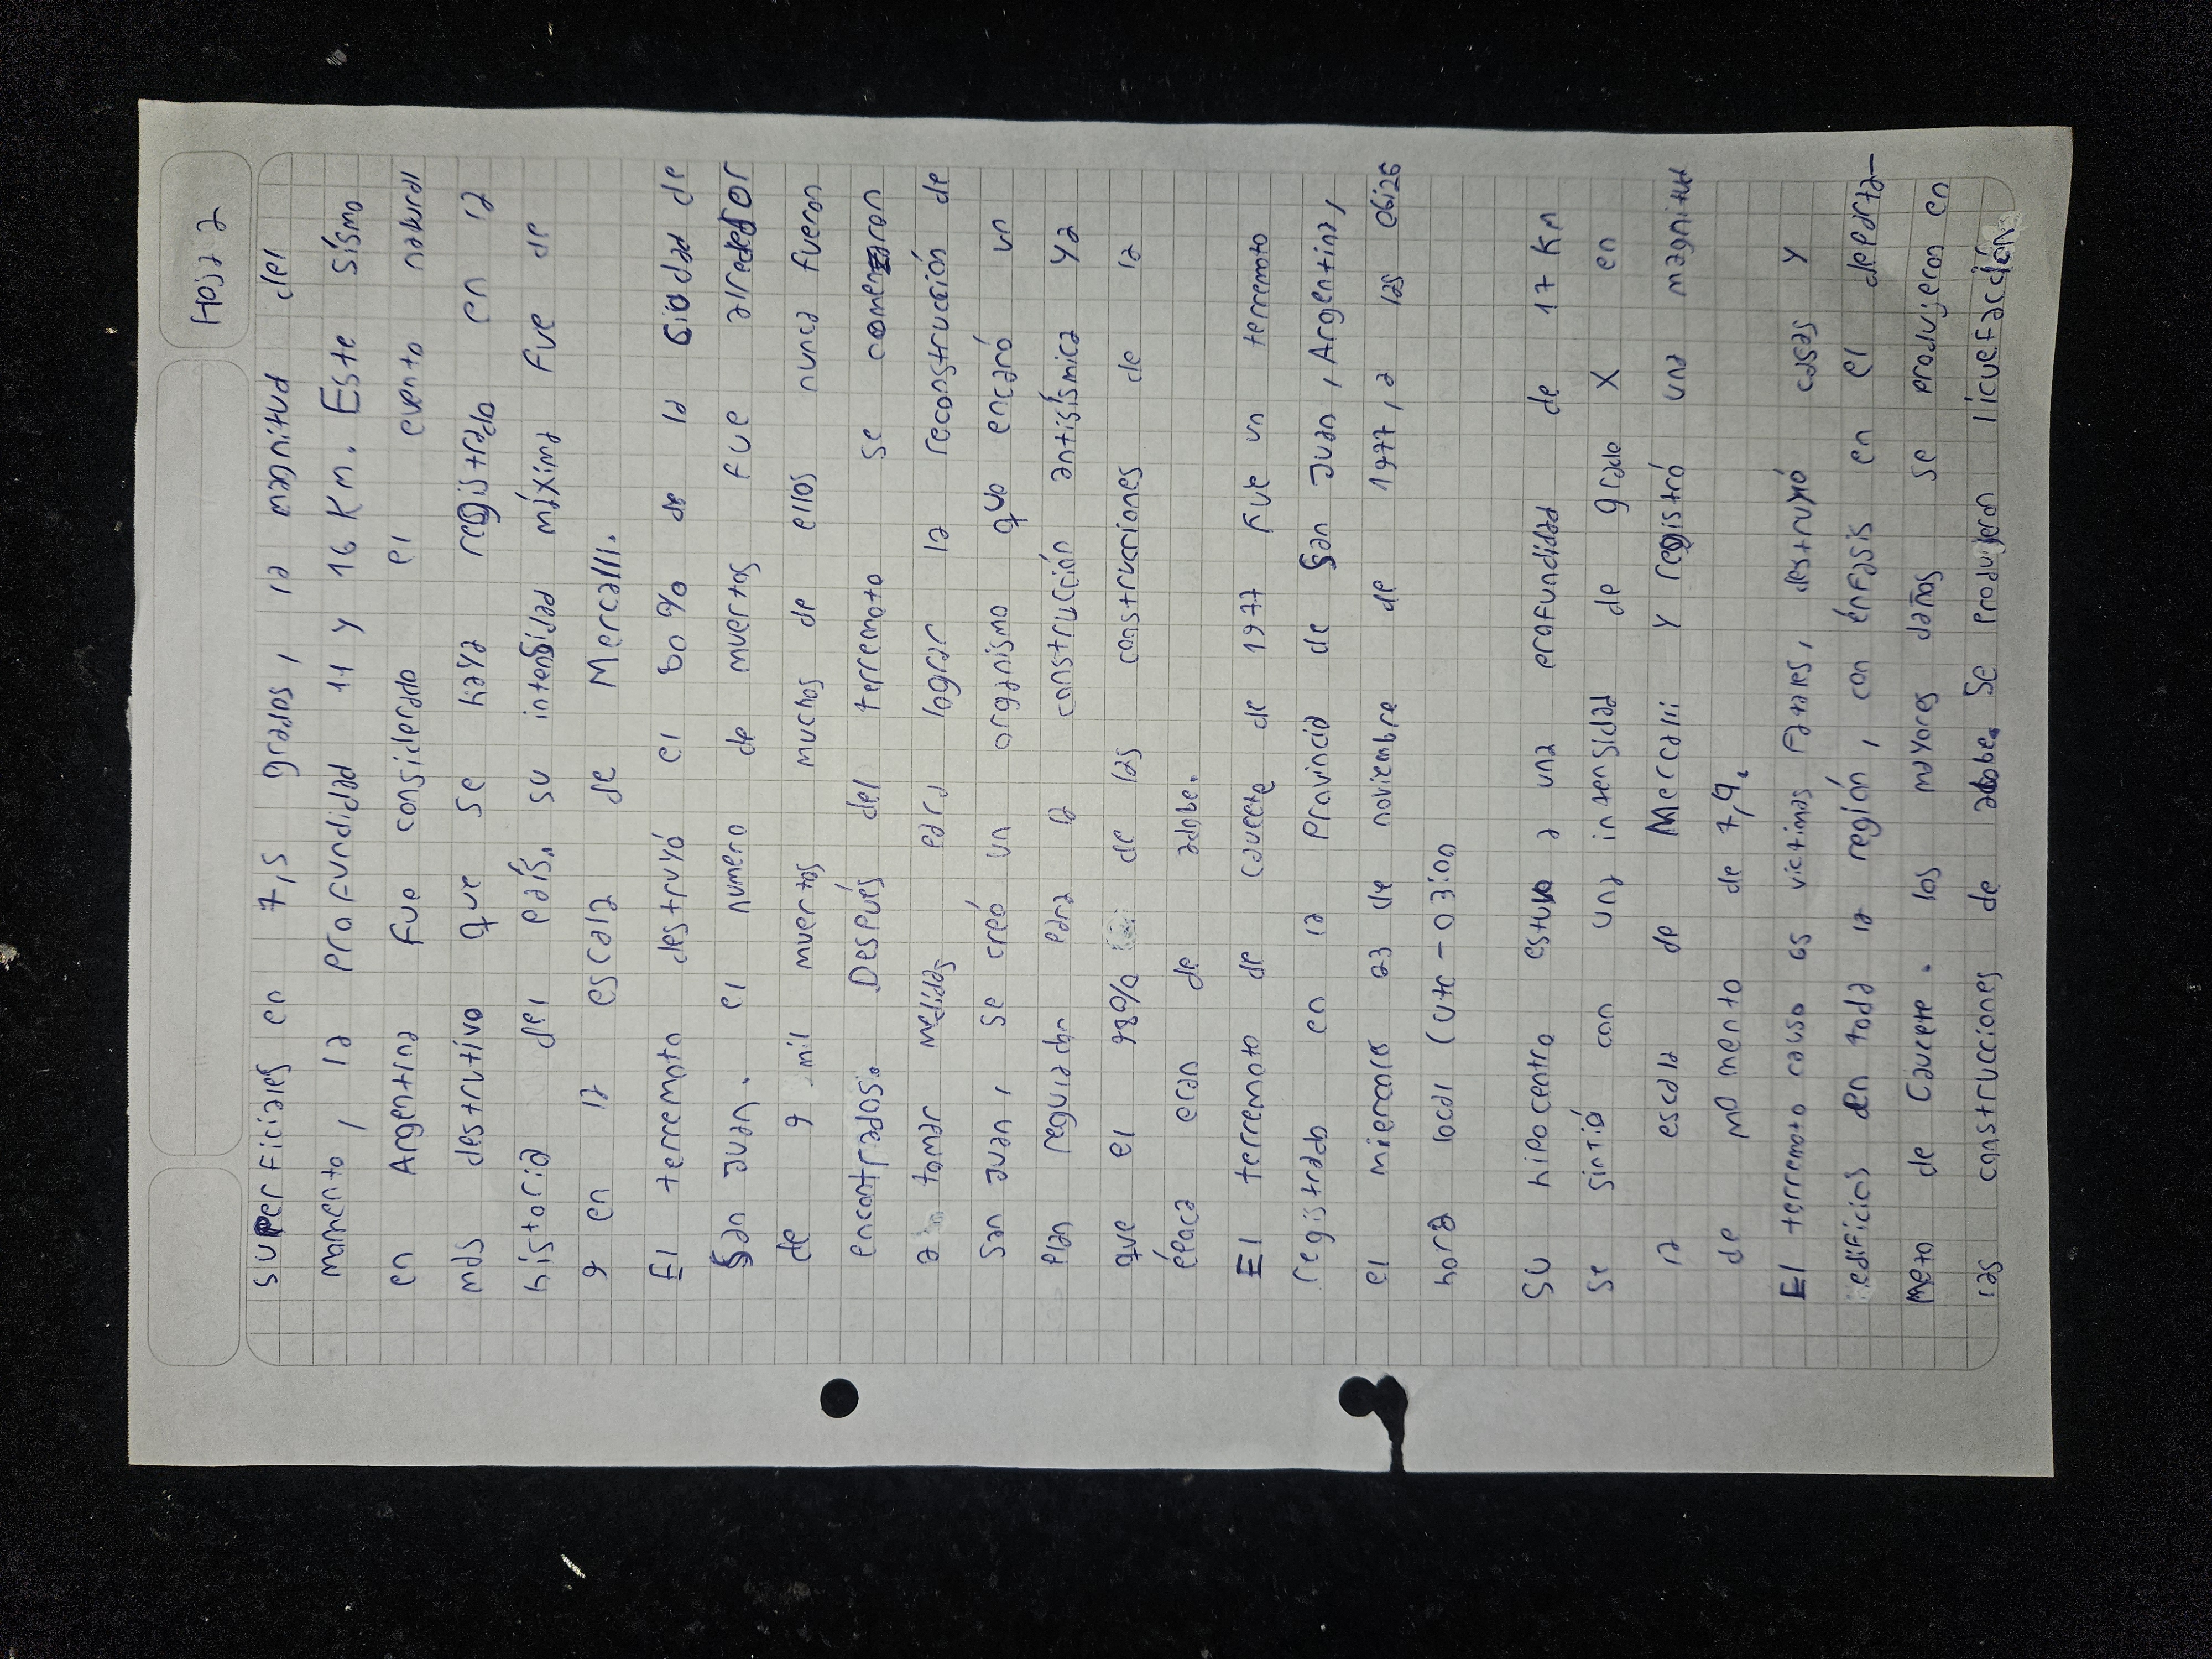 Hoja 2
superficiales en 7,5 grados, la magnitud del
momento, la profundidad 11 y 16 Km. Este sísmo
en Argentina fue considerado el evento natural
mas destructivo que se haya registrado en la
historia del país. su intensidad máxima fue de
9 en la escala de Mercalli.
El terremoto destruyó el 80% de la ciudad de
San Juan. el numero de muertos fue alrededor
de 9 mil muertos muchos de ellos nunca fueron
encontrados. Después del terremoto se comenzaron
a tomar medidas para lograr la reconstrucción de
San Juan, se creó un organismo que encaró un
plan regulador para la construcción antisísmica ya
que el 98% de las construcciones de la
época eran de adobe.
El terremoto de Caucete de 1977 fue un terremoto
registrado en la Provincia de San Juan, Argentina,
el miercoles 23 de noviembre de 1977, a las 06:26
hora local (utc-03:00)
Su hipocentro estuvo a una profundidad de 17 Km
se sintió con una intensidad de grado X en
la escala de Mercalli y registró una magnitud
de momento de 7,4.
El terremoto causo 65 victimas fatales, destruyó casas y
edificios en toda la región, con énfasis en el departa-
mento de Caucete. los mayores daños se produjeron en
las construcciones de adobe. Se produjeron licuefacción.